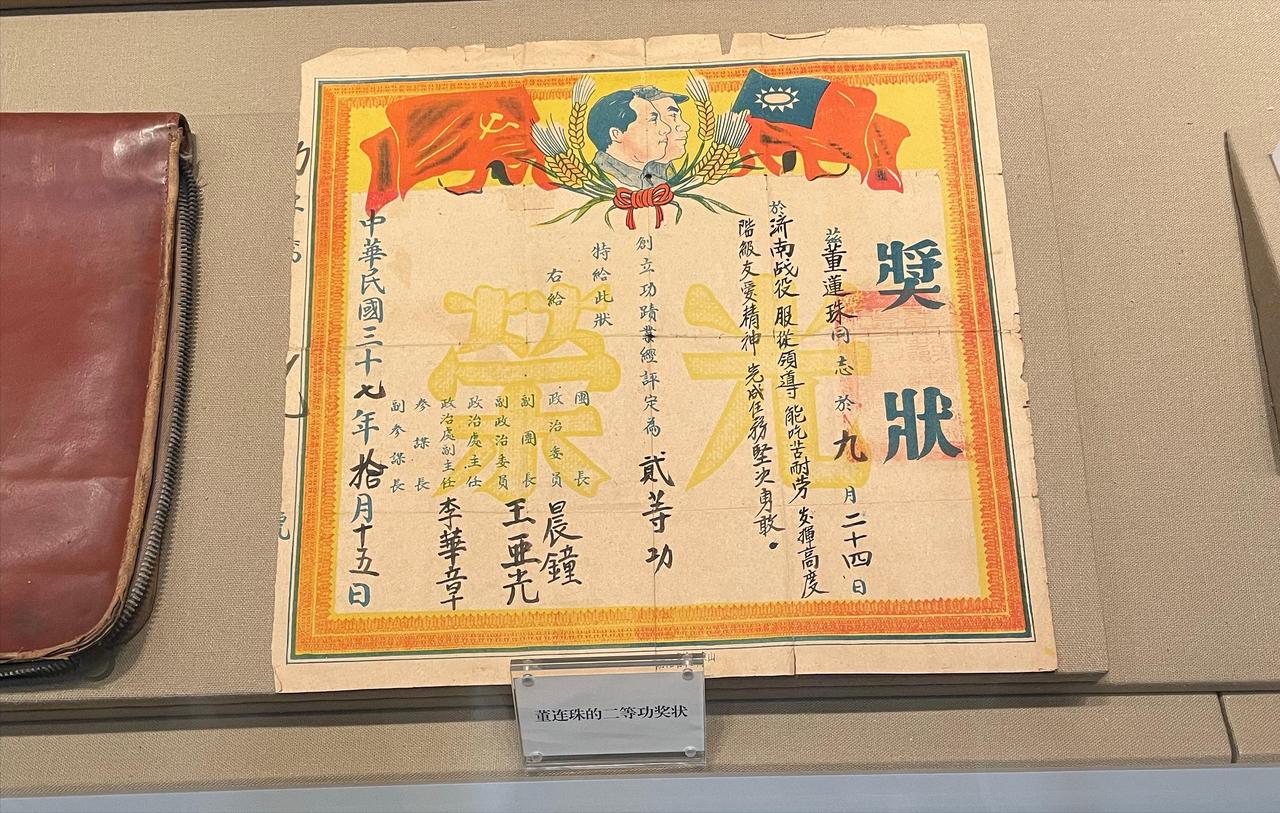 獎狀
茲董蓮珠同志於九月二十四日
於濟南战役服從領導能吃苦耐劳发揮高度
階級友愛精神完成任務堅決勇敢。
創立功蹟業經評定為貳等功
特給此狀
右給
團長
政治委員晨鐘
副團長
副政治委員王亚光
政治處主任
政治處副主任李華章
參謀長
副參謀長
中華民國三十七年拾月十五日
光榮
董连珠的二等功奖状